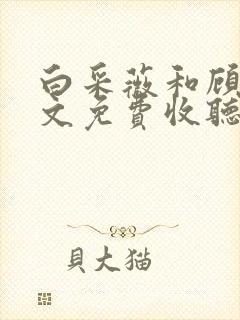 白采薇和顾
文免费收聽
貝大猫